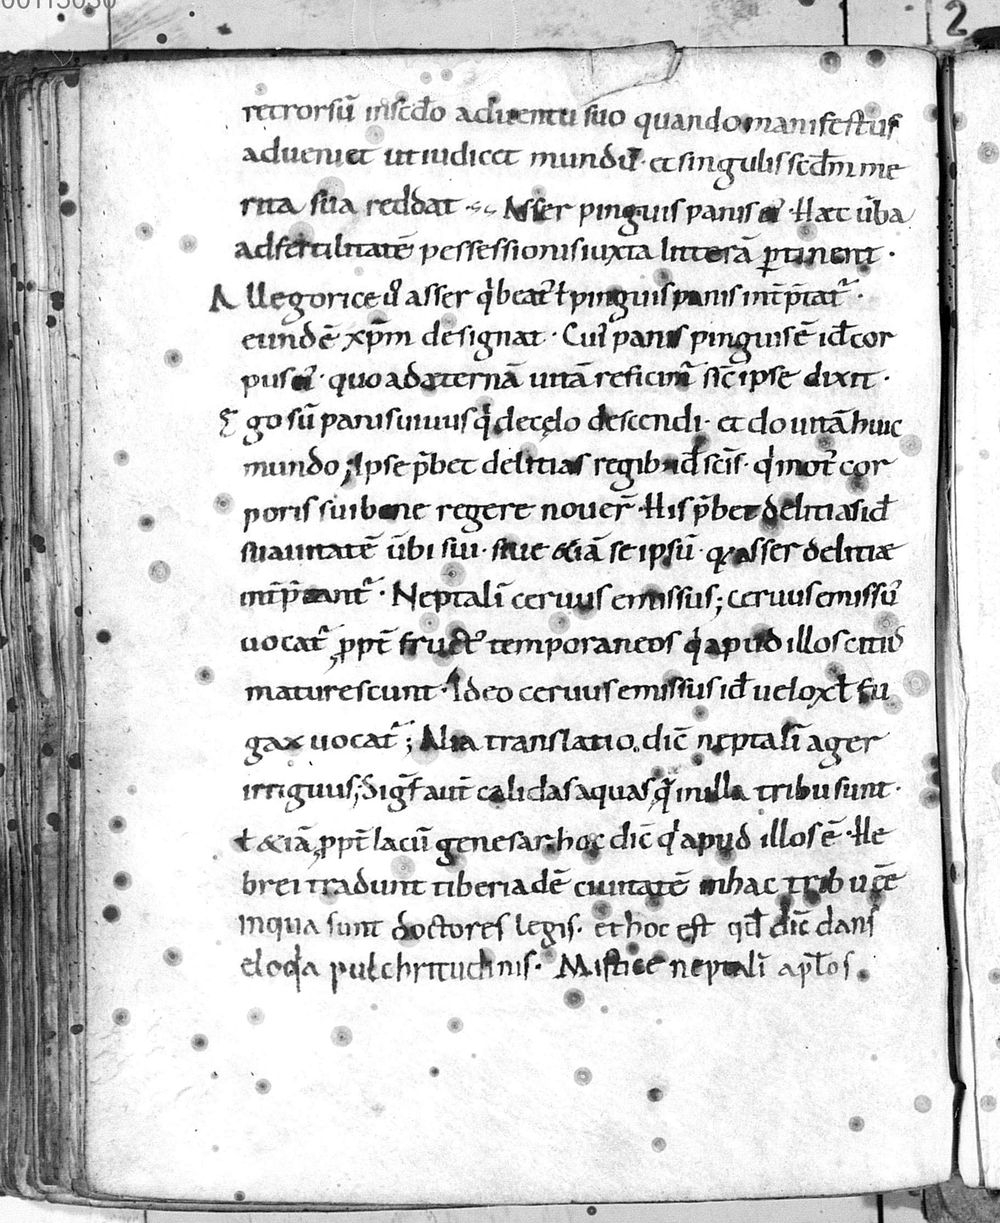 00115036
2
retrorsū inscd̄o aduentu suo quando manifestus
adueniet ut iudicet mundū · et singulis scdm̄ me
rita sua reddat Asser pinguis panis ei᾽ · Hæc ūba
ad fertilitatē possessionis iuxta litterā ꝑtinent ·
Allegorice ū asser q̇ beat᾽ ł pinguis panis int̄p̄tat᾽ ·
eundē xp̄m designat · Cui᾽ panis pinguis ē id̄ cor
pus ei᾽ · quo ad æternā uitā reficim᾽ sic̄ ipse dixit ·
Ego sū panis uiuus q̇ de cęlo descendi · et do uitā huic
mundo ; Ipse p̄bet delitias regib᾽ id̄ scīs · q̇ mot᾽ cor
poris sui bene regere nouer̄ · His p̄bet delitias id̄
suauitatē ūbi sui · siue &iā se ipsū · q̄ asser delitiæ
int̄p̄tant᾽ · Neptalī ceruus emissus ; ceruus emissu᾽
uocat᾽ ꝓpt̄ fruct᾽ temporaneos q̇ apud illos citi᾽
maturescunt · Ideo ceruus emissus id̄ uelox ł fu
gax uocat᾽ ; Alia translatio dic̄ neptalī ager
irriguus ; Sigf̄ aut̄ calidas aquas q̄ in illa tribu sunt ·
ł &iā ꝓpt̄ lacū genesar · hoc dic̄ qd̄ apud illos ē · He
brei tradunt tiberiadē ciuitatē in hac tribu ēē
in qua sunt doctores legis · et hoc est qd̄ dic̄ dans
eloq̇a pulchritudinis · Mistice neptalī apłos ·